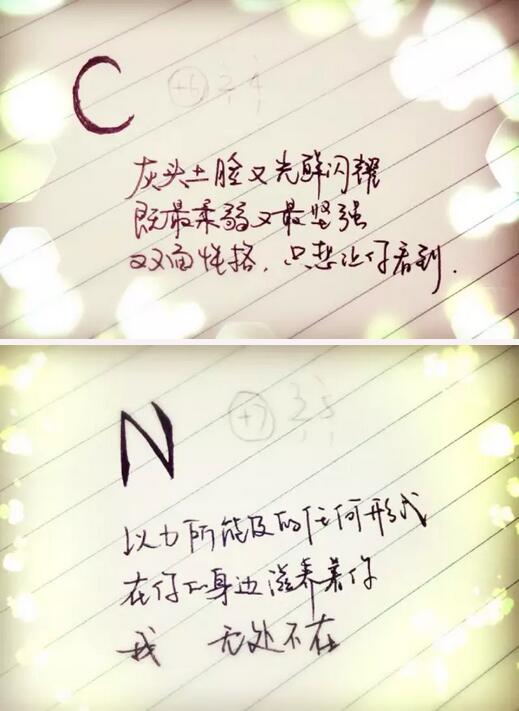 C
+6 3 4
灰头土脸又光鲜闪耀
既最柔弱又最坚强
双面性格，只想让你看到.
N
+7 3 5
以力所能及的任何形式
在你的身边滋养着你
我 无处不在